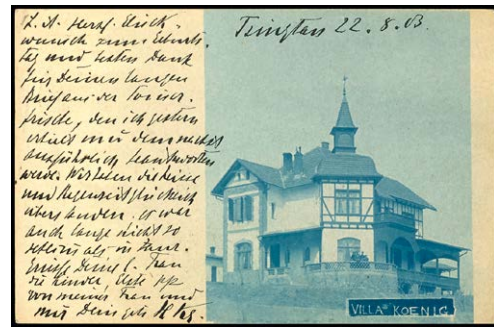 L. A. Herzl. Glück-
wunsch zum Geburts-
tag und besten Dank
für Deinen langen
Brief aus der Sommer-
frische, den ich gestern
erhielt und demnächst
ausführlich beantworten
werde. Wir haben die Hitze
und Regenzeit glücklich
überstanden. Es war
auch lange nicht so
schlimm als im Vorj.
Grüße Deine l. Frau
die Kinder,
von meiner Frau und
mir Dein
Tsingtau 22.8.03.
VILLA KOENIG